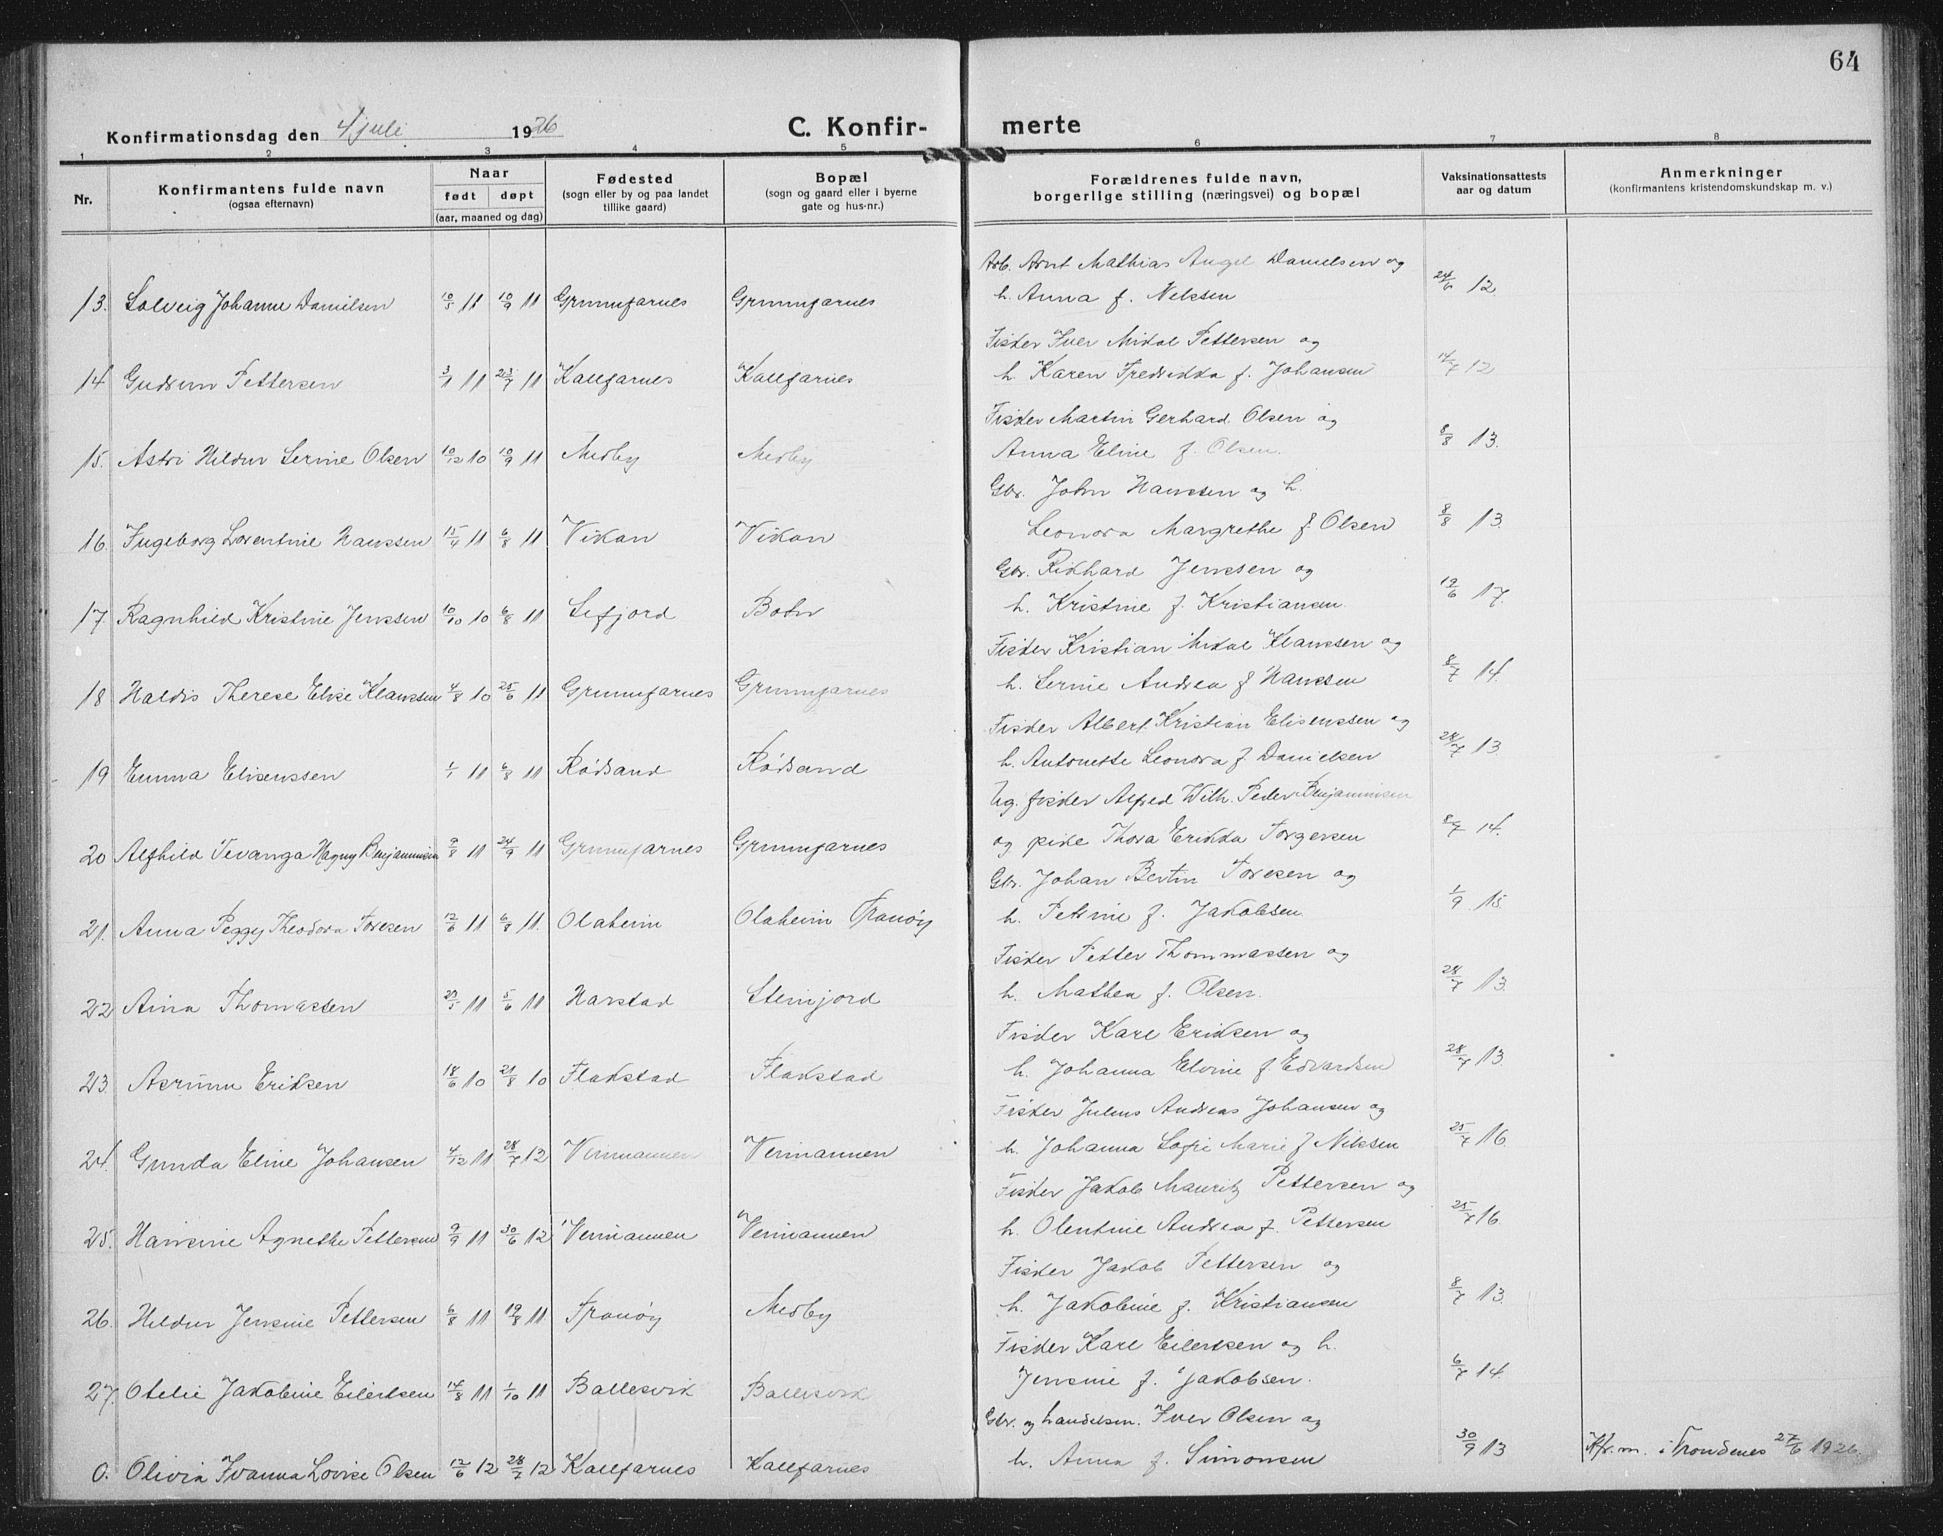 64
Konfirmationsdag den 4 juli 1926 C. Konfir- merte
1 2 3 4 5 6 7 8
Nr. Konfirmantens fulde navn (ogsaa efternavn) Naar født døpt (aar, maaned og dag) Fødested (sogn eller by og paa landet tillike gaard) Bopæl (sogn og gaard eller i byerne gate og hus-nr.) Forældrenes fulde navn, borgerlige stilling (næringsvei) og bopæl Vaksinationsattests aar og datum Anmerkninger (konfirmantens kristendomskundskap m. v.)
Arb. Arnt Mathias Angel Danielsen og
13. Solveig Johanne Danielsen 10/5 11 10/9 11 Grunnfarnes Grunnfarnes h. Anna f. Nilssen 24/6 12
Fisker Iver Mikal Pettersen og
14 Gudrun Pettersen 3/1 11 23/7 11 Kaldfarnes Kaldfarnes h. Karen Fredrikka f. Johansen 14/7 12
Fisker Martin Gerhard Olsen og
15. Astri Hildur Serine Olsen 10/12 10 10/9 11 Medby Medby Anna Eline f. Olsen. 8/8 13.
Gbr. John Hanssen og h.
16. Ingeborg Lorentine Hanssen 15/4 11 6/8 11 Vikan Vikan Leonora Margrethe f. Olsen 8/8 13.
Gbr. Rikhard Jenssen og
17 Ragnhild Kristine Jenssen 10/10 10 6/8 11 Sifjord Botn h. Kristine f. Kristiansen. 19/6 17.
Fisker Kristian Mikal Klaussen og
18 Haldis Therese Elise Klaussen 4/8 10 25/6 11 Grunnfarnes Grunnfarnes h. Serine Andrea f Hanssen 8/7 14.
Fisker Albert Kristian Elisenssen og
19 Emma Elisenssen 1/1 11 6/8 11 Rødsand Rødsand h. Antonette Leonora f. Danielsen 28/7 13
Ug. fisker Alfred Wilh. Peder Benjaminsen
20 Alfhild Tevanga Magny Benjaminsen 9/8 11 24/9 11 Grunnfarnes Grunnfarnes og pike Thora Erikka Torgersen 8/7 14.
Gbr. Johan Bertin Toresen og
21. Anna Peggy Theodora Toresen 12/6 11 6/8 11. Olaheim Olaheim Tranøy h. Petrine f. Jakobsen 1/9 15
Fisker Petter Thommassen og
22 Aina Thomassen 29/5 11 5/6 11 Harstad Steinfjord h. Mathea f. Olsen. 28/7 13.
Fisker Karl Eriksen og
23. Asrunn Eriksen 18/6 10 21/8 10 Flakstad Flakstad h. Johanna Elvine f Edvardsen 28/7 13.
Fisker Julius Andreas Johansen og
24. Gunda Eline Johansen 4/12 11 28/7 12 Veimannen Veimannen h. Johanna Sofie Marie f Nilssen 25/7 16
Fisker Jakob Mauritz Pettersen og
25. Hansine Agnethe Pettersen 9/9 11 30/6 12 Veimannen Veimannen h. Olentine Andrea f. Pettersen 25/7 16.
Fisker Jakob Pettersen og
26. Hildur Jensine Pettersen 6/8 11 19/8 11. Tranøy Medby h. Jakobine f. Kristiansen 8/7 13.
Fisker Karl Eilertsen og h.
27. Otelie Jakobine Eilertsen 14/8 11 1/10 11 Ballesvik Ballesvik Jensine f. Jakobsen. 6/7 14.
Gbr. og handelsm. Iver Olsen og
0. Olivia Ivanna Lovise Olsen 12/6 12 28/7 12 Kaldfarnes Kaldfarnes h. Anna f. Simonsen 30/9 13 Kfr. m. i Trondenes 27/6 1926.